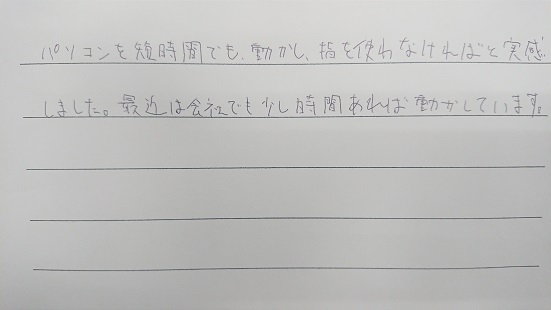 パソコンを短時間でも、動かし、指を使わなければと実感
しました。最近は会社でも少し時間あれば動かしています。